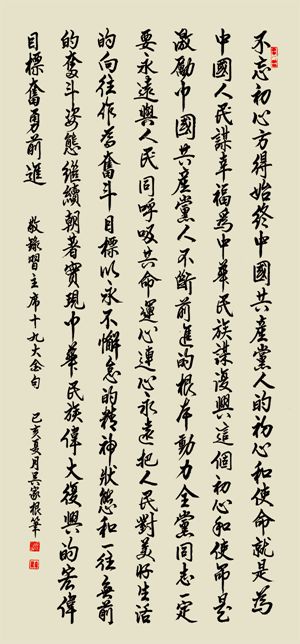 不忘初心方得始終中國共產黨人的初心和使命就是為
中國人民謀幸福為中華民族謀復興這個初心和使命是
激勵中國共產黨人不斷前進的根本動力全黨同志一定
要永遠與人民同呼吸共命運心連心永遠把人民對美好生活
的向往作為奮斗目標以永不懈怠的精神狀態和一往無前
的奮斗姿態繼續朝著實現中華民族偉大復興的宏偉
目標奮勇前進
敬錄習主席十九大金句
己亥夏月吳家根筆